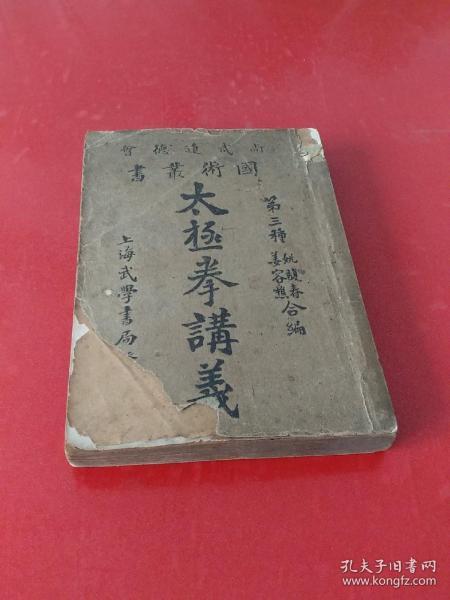 尚武進德會
國術叢書
第三種
姚馥春
姜容樵
合編
太極拳講義
上海武學書局
孔夫子旧书网
www.kongfz.com